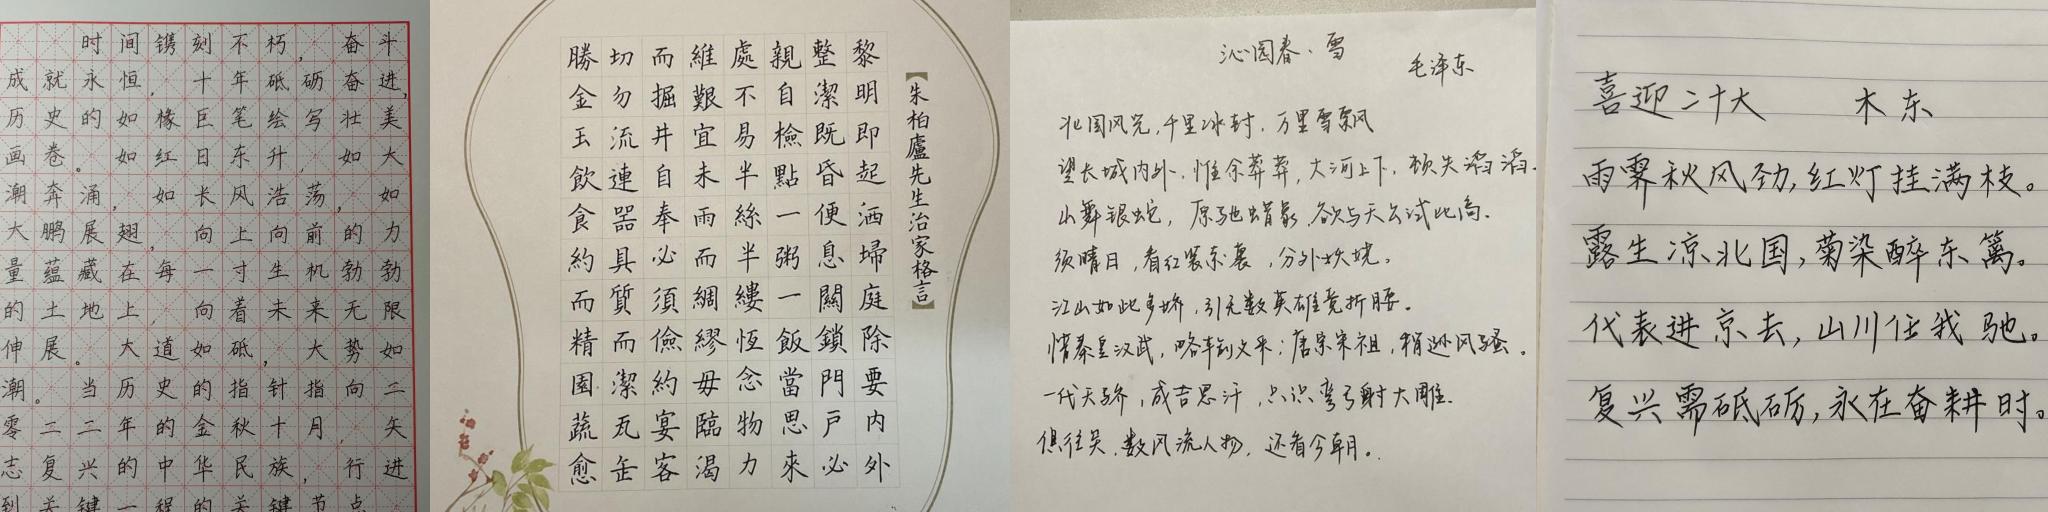 时间镌刻不朽,奋斗
成就永恒。十年砥砺奋进,
历史的如椽巨笔绘写壮美
画卷。如红日东升,如大
潮奔涌,如长风浩荡,如
大鹏展翅,向上向前的力
量蕴藏在每一寸生机勃勃
的土地上,向着未来无限
伸展。大道如砥,大势如
潮。当历史的指针指向二
零二二年的金秋十月,矢
志复兴的中华民族,行进
到关键一程的关键节点
【朱柏廬先生治家格言】
黎明即起洒埽庭除要内外
整潔既昏便息關鎖門戶必
親自檢點一粥一飯當思來
處不易半絲半縷恆念物力
維艱宜未雨而綢繆毋臨渴
而掘井自奉必須儉約宴客
切勿流連器具質而潔瓦缶
勝金玉飲食約而精園蔬愈
沁园春、雪
毛泽东
北国风光,千里冰封,万里雪飘风
望长城内外,惟余莽莽,大河上下,顿失滔滔.
山舞银蛇,原驰蜡象,欲与天公试比高.
须晴日,看红装素裹,分外妖娆。
江山如此多娇,引无数英雄竞折腰。
惜秦皇汉武,略输文采;唐宗宋祖,稍逊风骚。
一代天骄,成吉思汗,只识弯弓射大雕.
俱往矣,数风流人物,还看今朝。
喜迎二十大 木东
雨霁秋风劲,红灯挂满枝。
露生凉北国,菊染醉东篱。
代表进京去,山川任我驰。
复兴需砥砺,永在奋耕时。